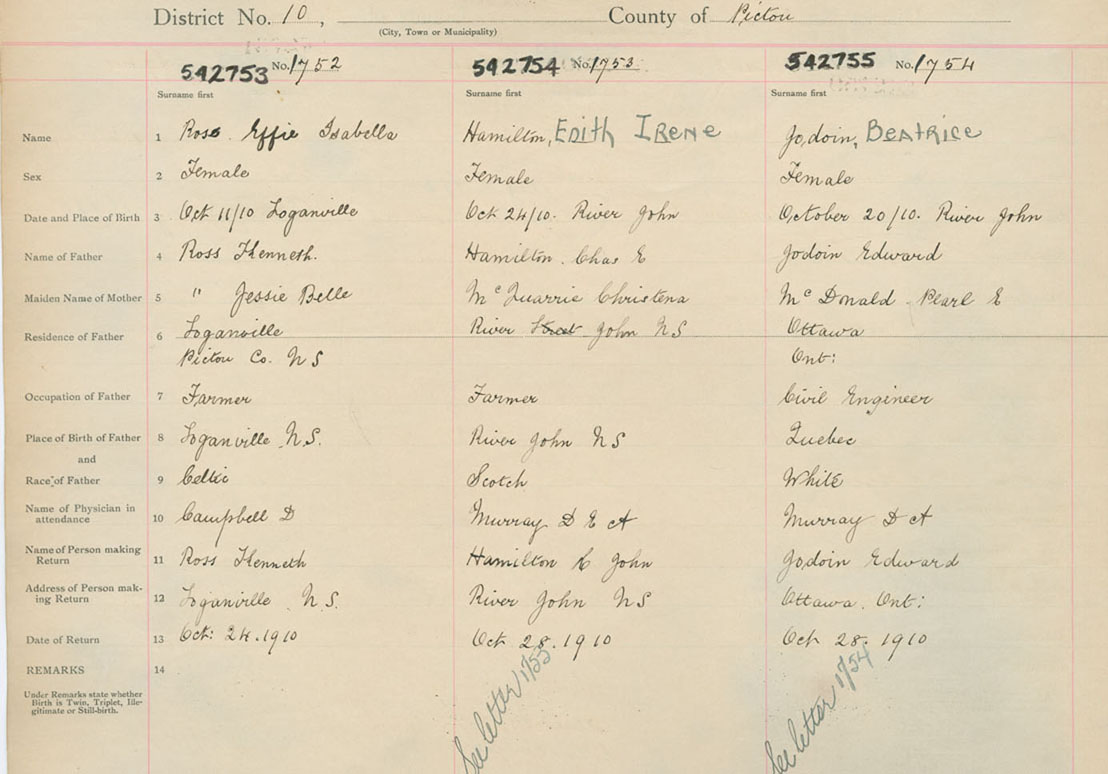 District No. 10, County of Pictou
(City, Town or Municipality)
542753 No. 1752 542754 No. 1753 542755 No. 1754
Surname first Surname first Surname first
Name 1 Ross Effie Isabella Hamilton, Edith Irene Jodoin, Beatrice
Sex 2 Female Female Female
Date and Place of Birth 3 Oct 11/10 Loganville Oct 24/10. River John October 20/10. River John
Name of Father 4 Ross Kenneth. Hamilton. Chas E Jodoin Edward
Maiden Name of Mother 5 " Jessie Belle McQuarrie Christena McDonald Pearl E
Residence of Father 6 Loganville River John NS Ottawa
Pictou Co. N S Ont:
Occupation of Father 7 Farmer Farmer Civil Engineer
Place of Birth of Father 8 Loganville N.S. River John NS Quebec
and
Race of Father 9 Celtic Scotch White
Name of Physician in
attendance 10 Campbell D Murray D E A Murray D A
Name of Person making
Return 11 Ross Kenneth Hamilton John Jodoin Edward
Address of Person mak-
ing Return 12 Loganville N.S. River John NS Ottawa. Ont:
Date of Return 13 Oct: 24.1910 Oct 28.1910 Oct 28.1910
REMARKS 14
Under Remarks state whether
Birth is Twin, Triplet, Ille-
gitimate or Still-birth.
See letter 1753 See letter 1754